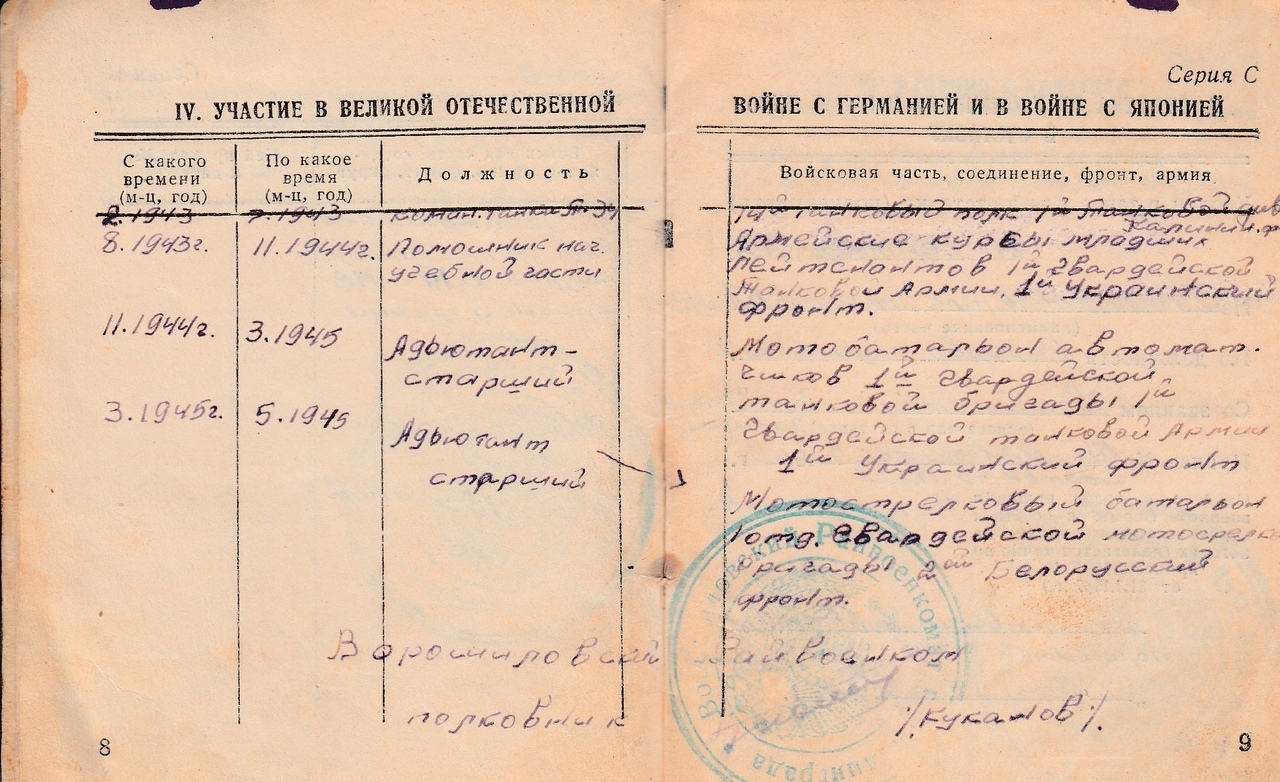 Серия С
IV. УЧАСТИЕ В ВЕЛИКОЙ ОТЕЧЕСТВЕННОЙ
ВОЙНЕ С ГЕРМАНИЕЙ И В ВОЙНЕ С ЯПОНИЕЙ
С какого
времени
(м-ц, год)
По какое
время
(м-ц, год)
Должность
Войсковая часть, соединение, фронт, армия
2.1943 7.1943 коман. танка Т-34
14й танковый полк 1й Танковой
Калинин.ф
8.1943г. 11.1944г. Помошник нач.
учебной части
Армейские курсы младших
лейтенантов 1й гвардейской
Танковой Армии, 1й Украинский
фронт.
11.1944г. 3.1945 Адьютант-
старший
Мотобатальон автомат.
чиков 1й гвардейской
танковой бригады 1й
гвардейской танковой Армии
1й Украинский фронт
3.1945г. 5.1945 Адьютант
старший
Мотострелковый батальон
1 отд. гвардейской мотосрелк
бригады 2ой Белорусский
фронт.
Ворошиловский Райвоенком
полковник /Куканов/.
8
9